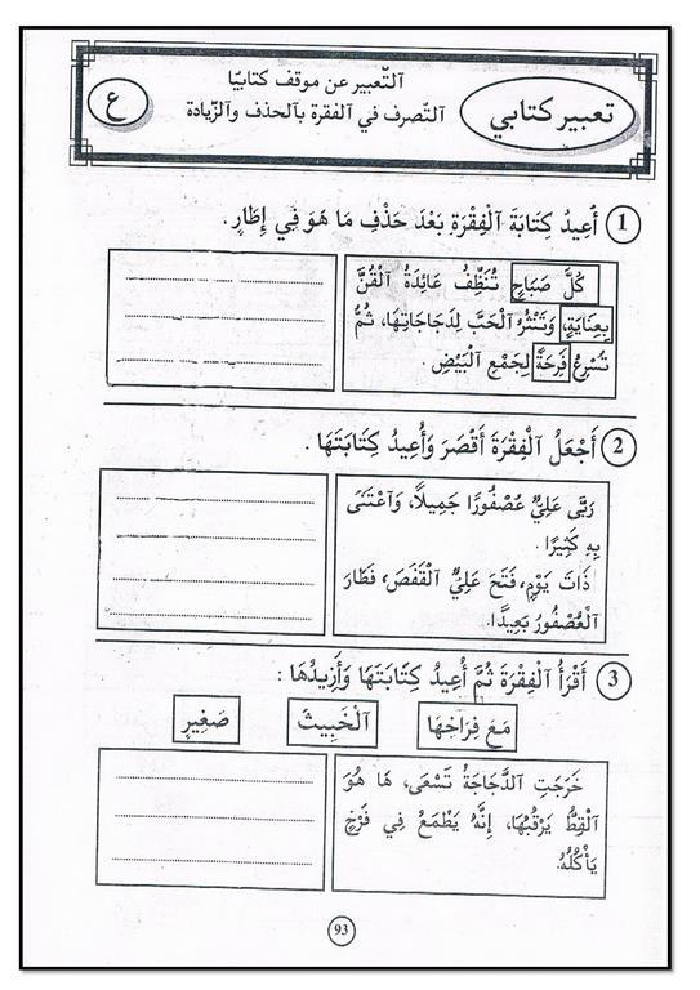 اَلتّعبير عن موقف كتابيّا
تعبير كتابي
ع
اَلتّصرف في اَلفقرة بالحذف والزّيادة
1 أُعِيدُ كِتَابَةَ اَلْفِقْرَةِ بَعْدَ حَذْفِ مَا هُوَ فِي إِطَارٍ.
كُلَّ صَبَاحٍ تُنَظِّفُ عَائِدَةُ اَلْقُنَّ
بِعِنَايَةٍ، وَتَنْثُرُ اَلْحَبَّ لِدَجَاجَاتِهَا، ثُمَّ
تُسْرِعُ فَرِحَةً لِجَمْعِ اَلْبَيْضِ.
2 أَجْعَلُ اَلْفِقْرَةَ أَقْصَرَ وَأُعِيدُ كِتَابَتَهَا.
رَبَّى عَلِيٌّ عُصْفُورًا جَمِيلاً، وَاَعْتَنَى
بِهِ كَثِيرًا.
ذَاتَ يَوْمٍ، فَتَحَ عَلِيٌّ اَلْقَفَصَ، فَطَارَ
اَلْعُصْفُورُ بَعِيدًا.
3 أَقْرَأُ اَلْفِقْرَةَ ثُمَّ أُعِيدُ كِتَابَتَهَا وَأَزِيدُهَا :
مَعَ فِرَاخِهَا اَلْخَبِيثَ صَغِيرٍ
خَرَجَتِ اَلدَّجَاجَةُ تَسْعَى، هَا هُوَ
اَلْقِطُّ يَرْقُبُهَا، إِنَّهُ يَطْمَعُ فِي فَرْخٍ
يَأْكُلُهُ.
93